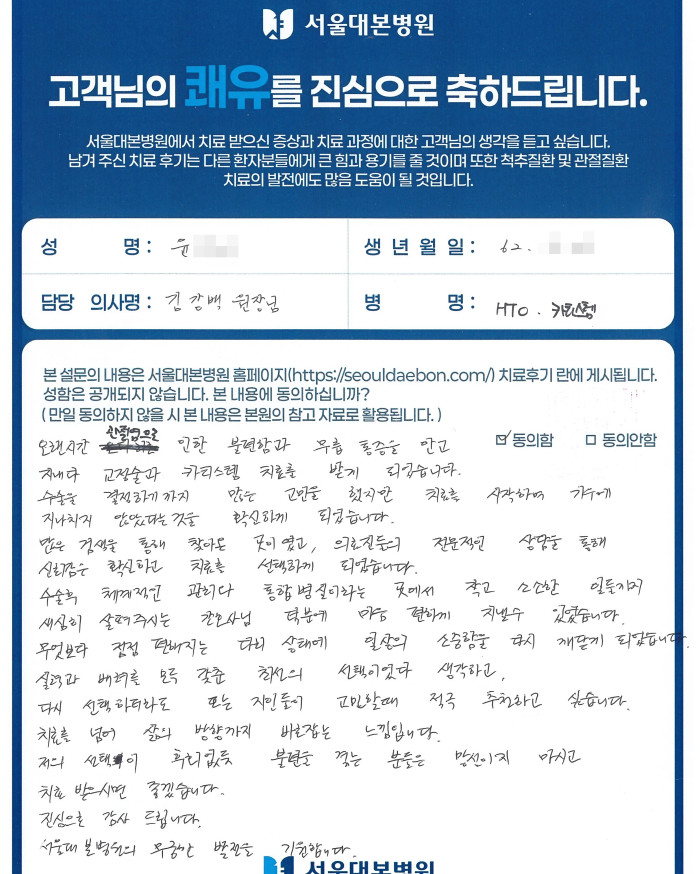 서울대본병원
고객님의 쾌유를 진심으로 축하드립니다.
서울대본병원에서 치료 받으신 증상과 치료 과정에 대한 고객님의 생각을 듣고 싶습니다.
남겨 주신 치료 후기는 다른 환자분들에게 큰 힘과 용기를 줄 것이며 또한 척추질환 및 관절질환
치료의 발전에도 많음 도움이 될 것입니다.
성 명 : 윤
생 년 월 일 : 62.
담당 의사명 : 김강백 원장님
병 명 : HTO . 카티스템
본 설문의 내용은 서울대본병원 홈페이지(https://seouldaebon.com/) 치료후기 란에 게시됩니다.
성함은 공개되지 않습니다. 본 내용에 동의하십니까?
( 만일 동의하지 않을 시 본 내용은 본원의 참고 자료로 활용됩니다. )
☑ 동의함 □ 동의안함
오랜시간 인한 불편함과 무릎 통증을 안고
지내다 교정술과 카티스템 치료를 받게 되었습니다.
수술을 결정하기까지 많은 고민을 했지만 치료를 시작하며 기우에
지나치지 않았다는것을 확신하게 되었습니다.
많은 검색을 통해 찾아온 곳이였고, 의료진들의 전문적인 상담을 통해
신뢰감은 확신하고 치료를 선택하게 되었습니다.
수술후 체계적인 관리다 통합병실이라는 곳에서 작고 소소한 일들까지
세심히 살펴주시는 간호사님 덕분에 마음 편하게 지낼수 있었습니다.
무엇보다 점점 편해지는 다리 상태에 일상의 소중함을 다시 깨닫게 되었습니다.
실력과 배려를 모두 갖춘 최선의 선택이었다 생각하고,
다시 선택하더라도 또는 지인들이 고민할때 적극 추천하고 싶습니다.
치료를 넘어 삶의 방향까지 바로잡는 느낌입니다.
저의 선택이 후회없듯 불편을 겪는 분들은 망설이지 마시고
치료 받으시면 좋겠습니다.
진심으로 감사 드립니다.
서울대본병원의 무궁한 발전을 기원합니다.
서울대본병원